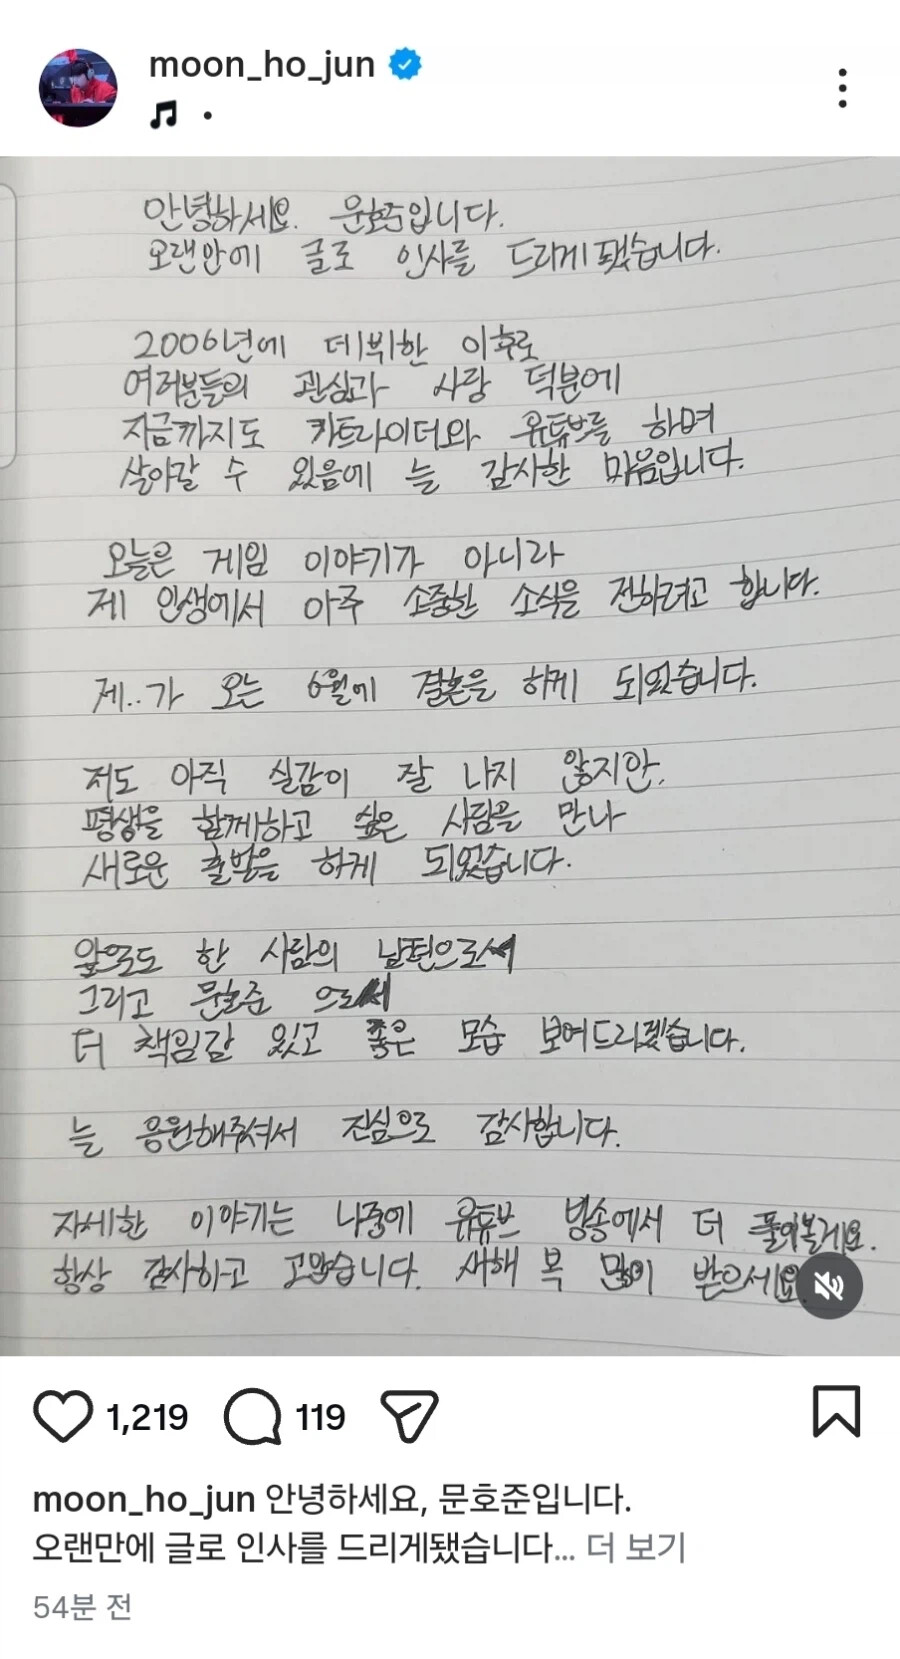 moon_ho_jun
안녕하세요. 문호준입니다.
오랜만에 글로 인사를 드리게 됐습니다.
2006년에 데뷔한 이후로
여러분들의 관심과 사랑 덕분에
지금까지도 카트라이더와 유튜브를 하며
살아갈 수 있음에 늘 감사한 마음입니다.
오늘은 게임 이야기가 아니라
제 인생에서 아주 소중한 소식을 전하려고 합니다.
제..가 오는 6월에 결혼을 하게 되었습니다.
저도 아직 실감이 잘 나지 않지만,
평생을 함께하고 싶은 사람을 만나
새로운 출발을 하게 되었습니다.
앞으로도 한 사람의 남편으로서
그리고 문호준 으로서
더 책임감 있고 좋은 모습 보여드리겠습니다.
늘 응원해주셔서 진심으로 감사합니다.
자세한 이야기는 나중에 유튜브 방송에서 더 풀어볼게요.
항상 감사하고 고맙습니다. 새해 복 많이 받으세요.
1,219
119
moon_ho_jun 안녕하세요, 문호준입니다.
오랜만에 글로 인사를 드리게됐습니다... 더 보기
54분 전